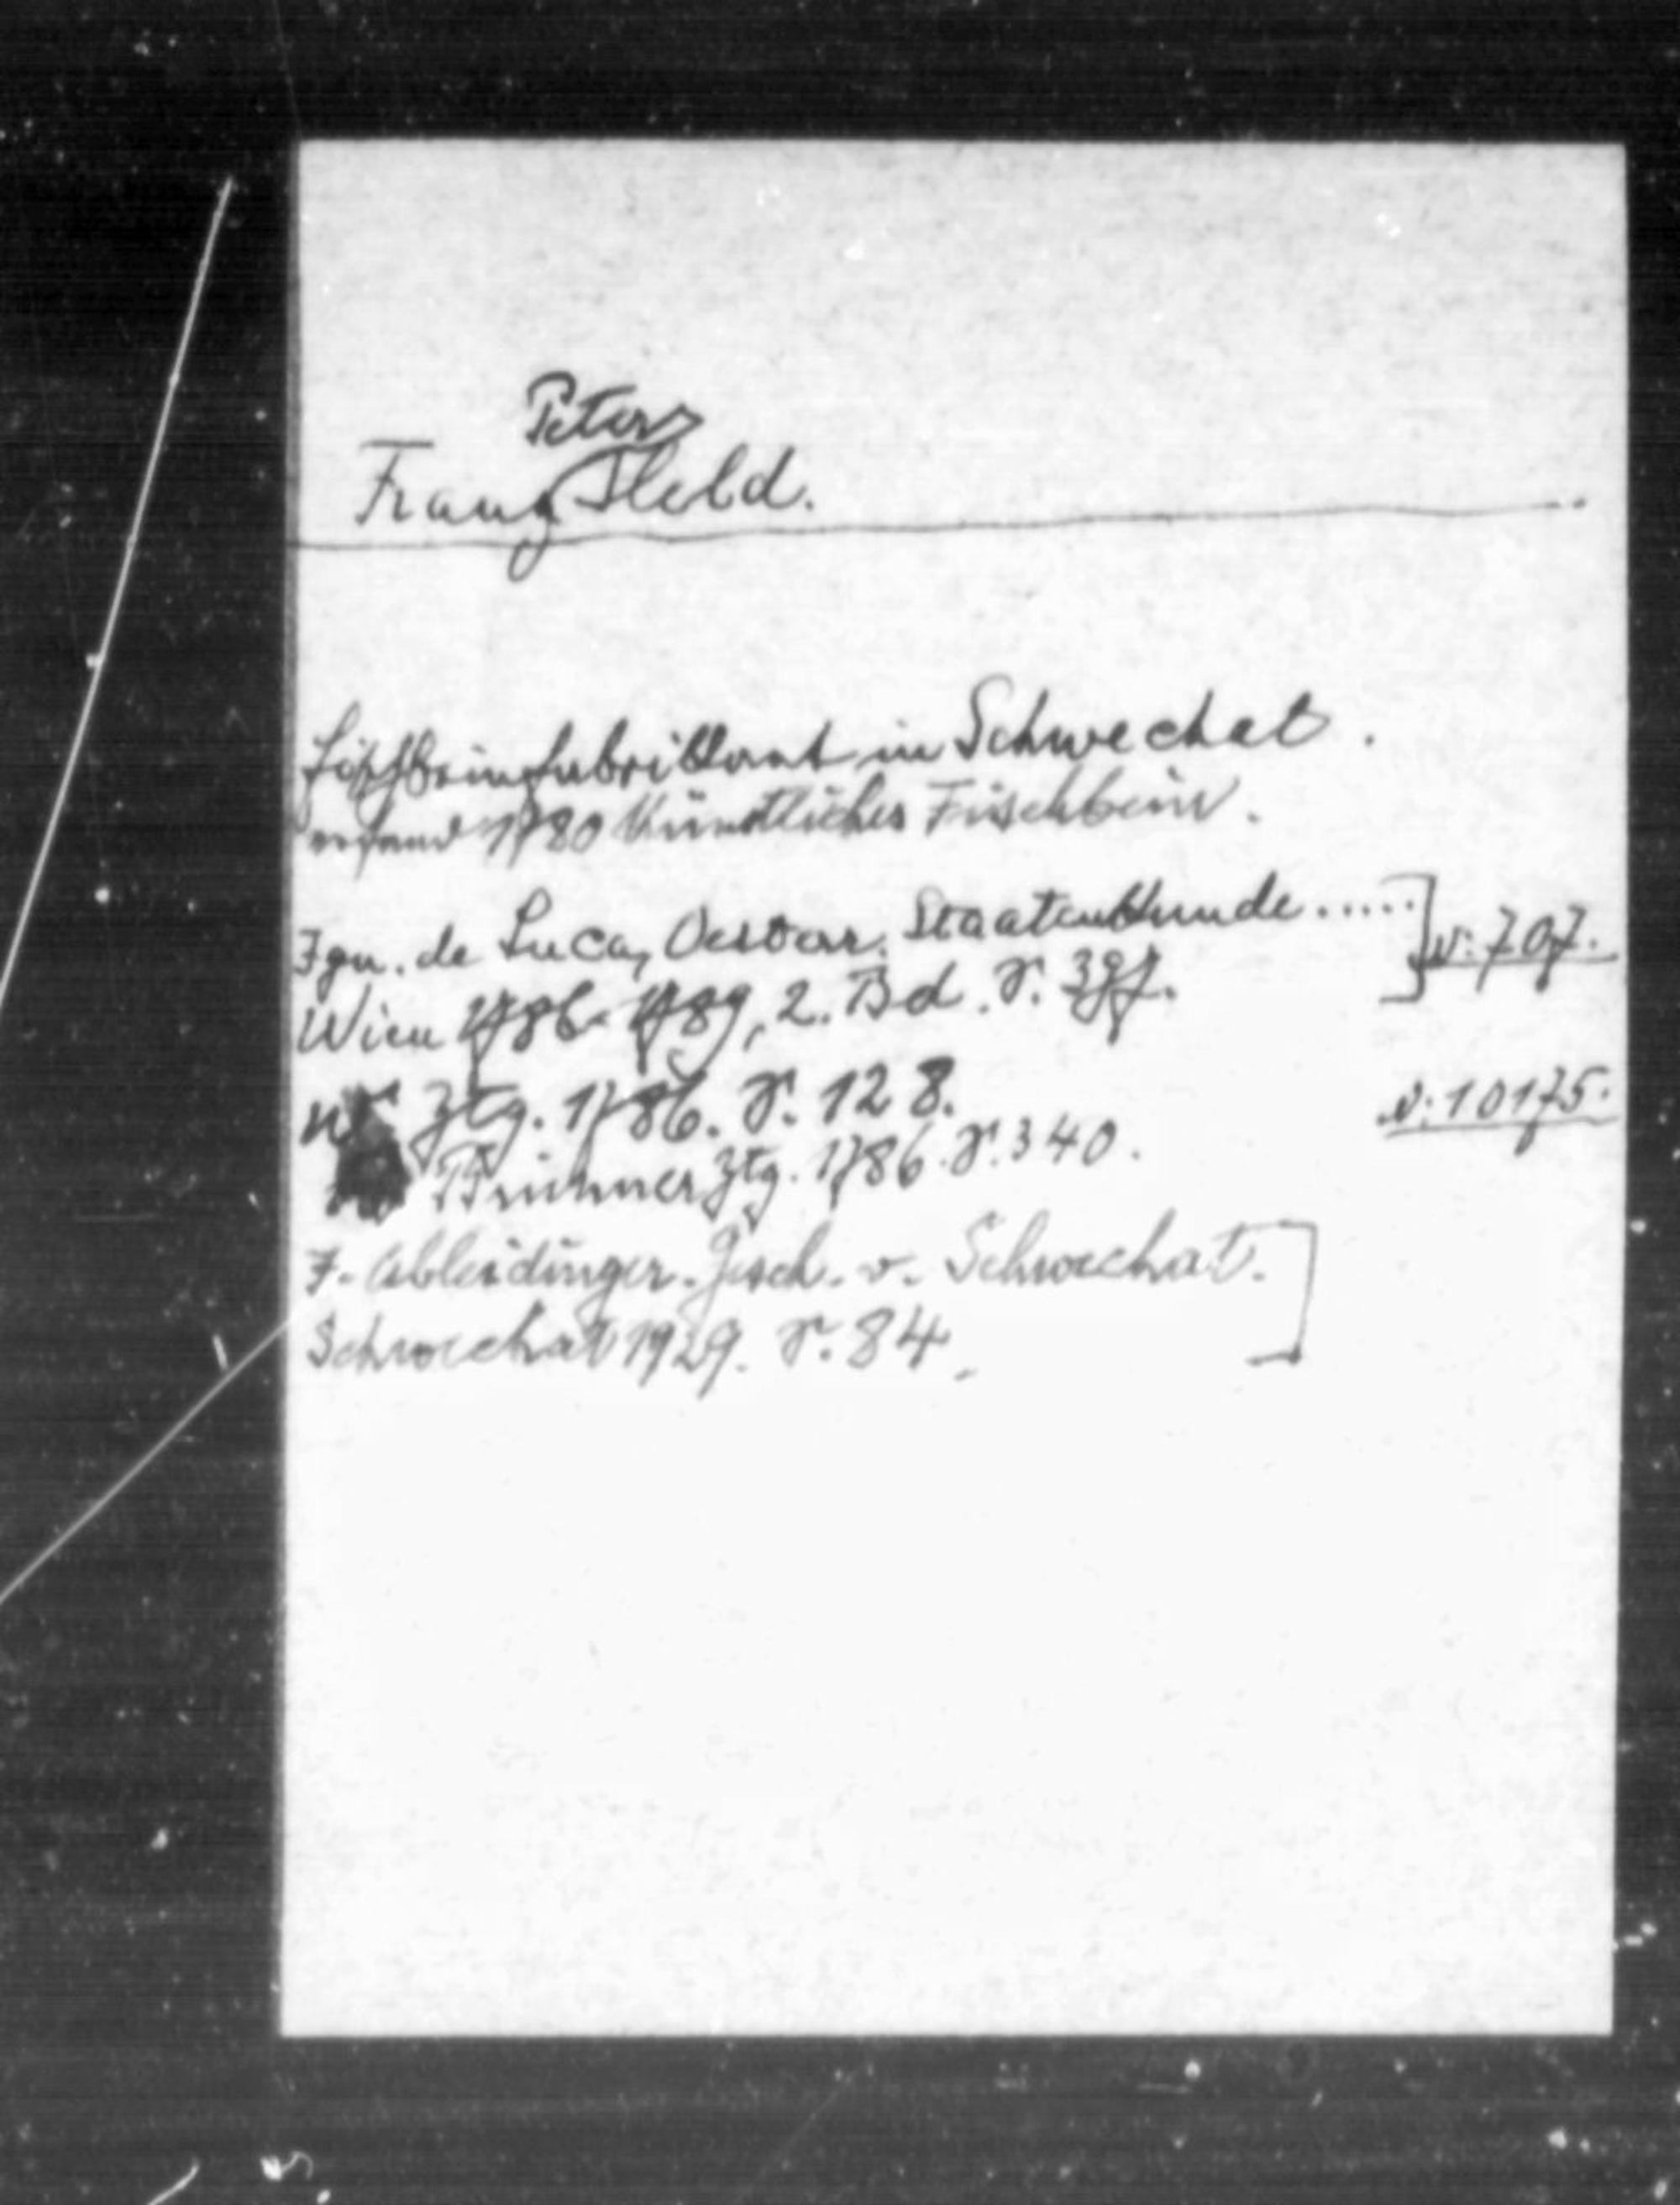 Peter
Franz Held.
Fischbeinfabrikant in Schwechat.
erfand 1780 künstliches Fischbein.
Ign. de Luca, Oesterr. Staatenkunde..... ] v: 707.
Wien 1786-1789, 2. Bd. S.
Ztg. 1786. S. 128. v: 10175.
Brünner Ztg. 1786. S. 340.
F. Ableidinger. Gesch. v. Schwechat. ]
Schwechat 1929. S. 84.